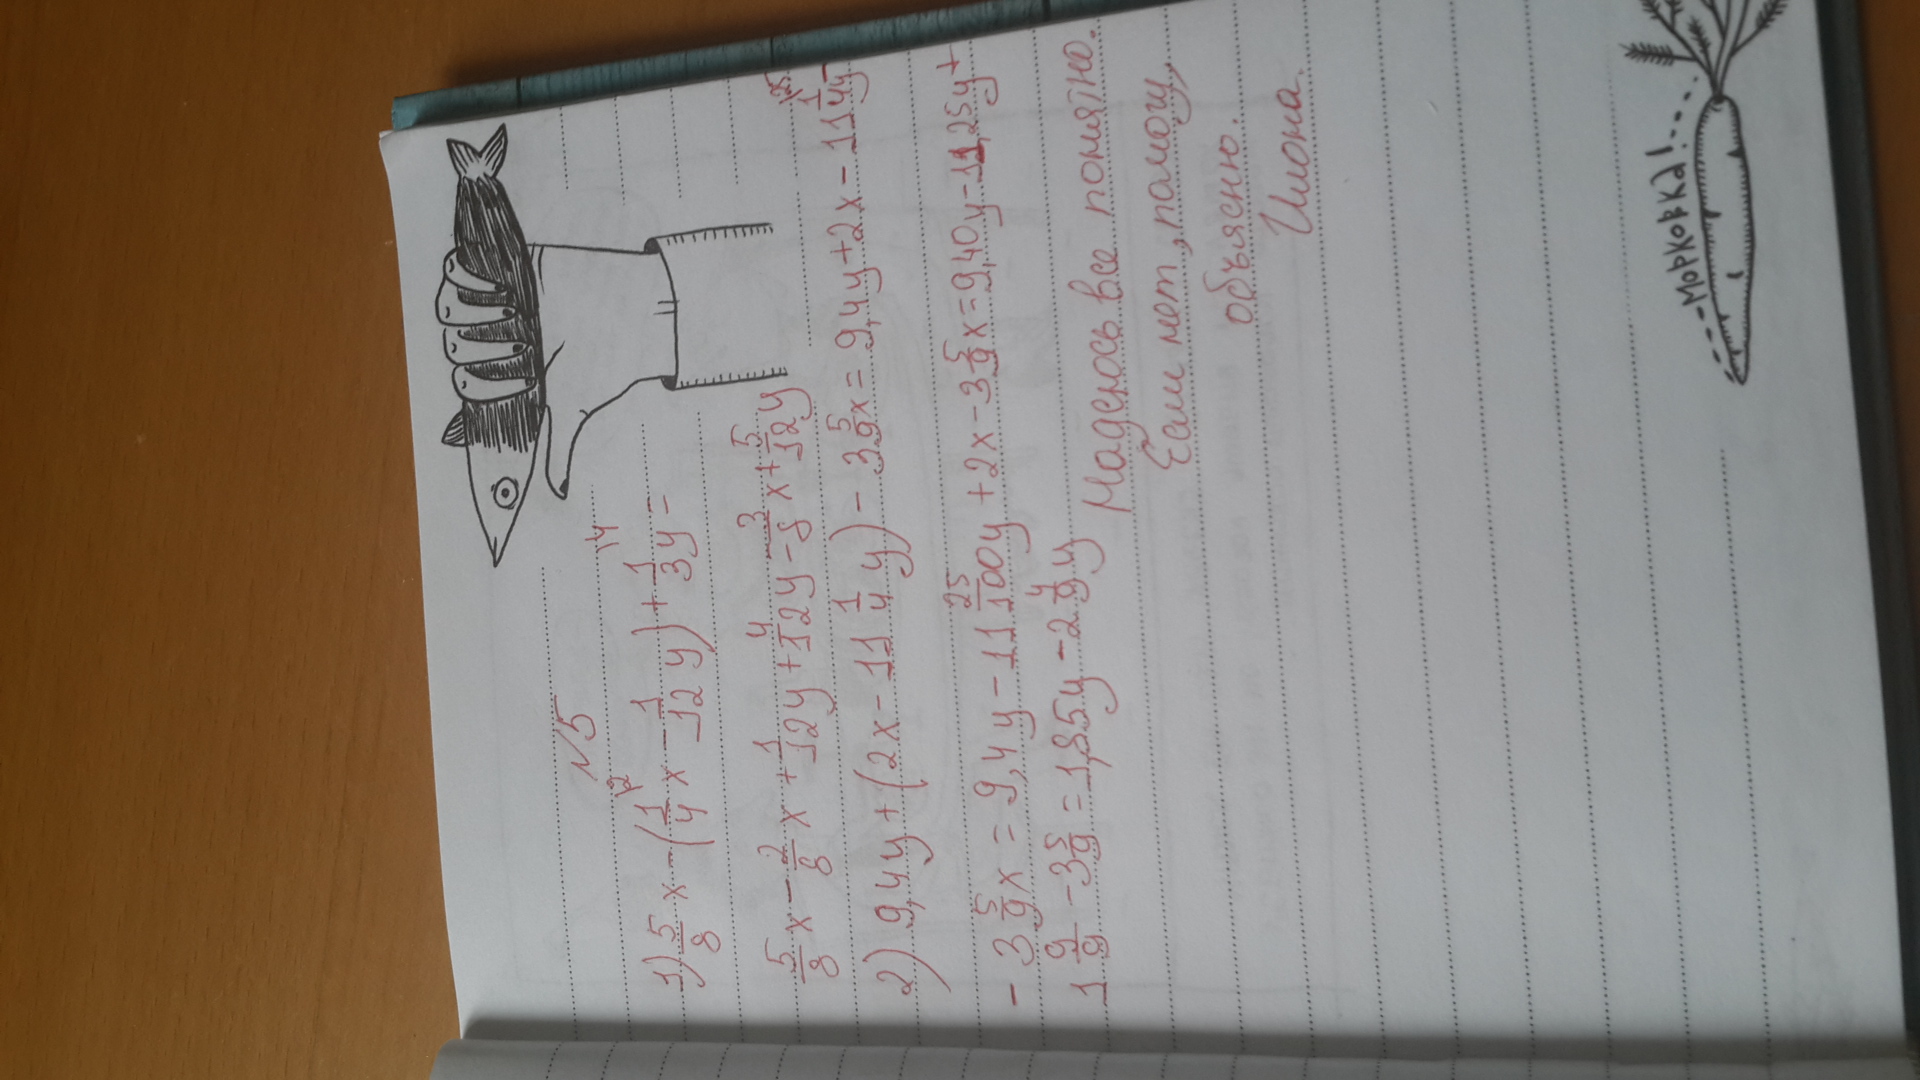 N5
1) 5/8 x - (1/4 x - 1/12 y) + 1/3 y =
5/8 x - 2/8 x + 1/12 y + 4/12 y = 3/8 x + 5/12 y
2) 9,4y + (2x - 11 1/4 y) - 3 5/9 x = 9,4y + 2x - 11 1/4 y -
- 3 5/9 x = 9,4y - 11 25/100 y + 2x - 3 5/9 x = 9,40y - 11,25y +
1 9/9 - 3 5/9 = 1,85y - 2 4/9 y
Надеюсь все понятно.
Если нет, помогу,
объясню.
Илона.
МОРКОВКА!